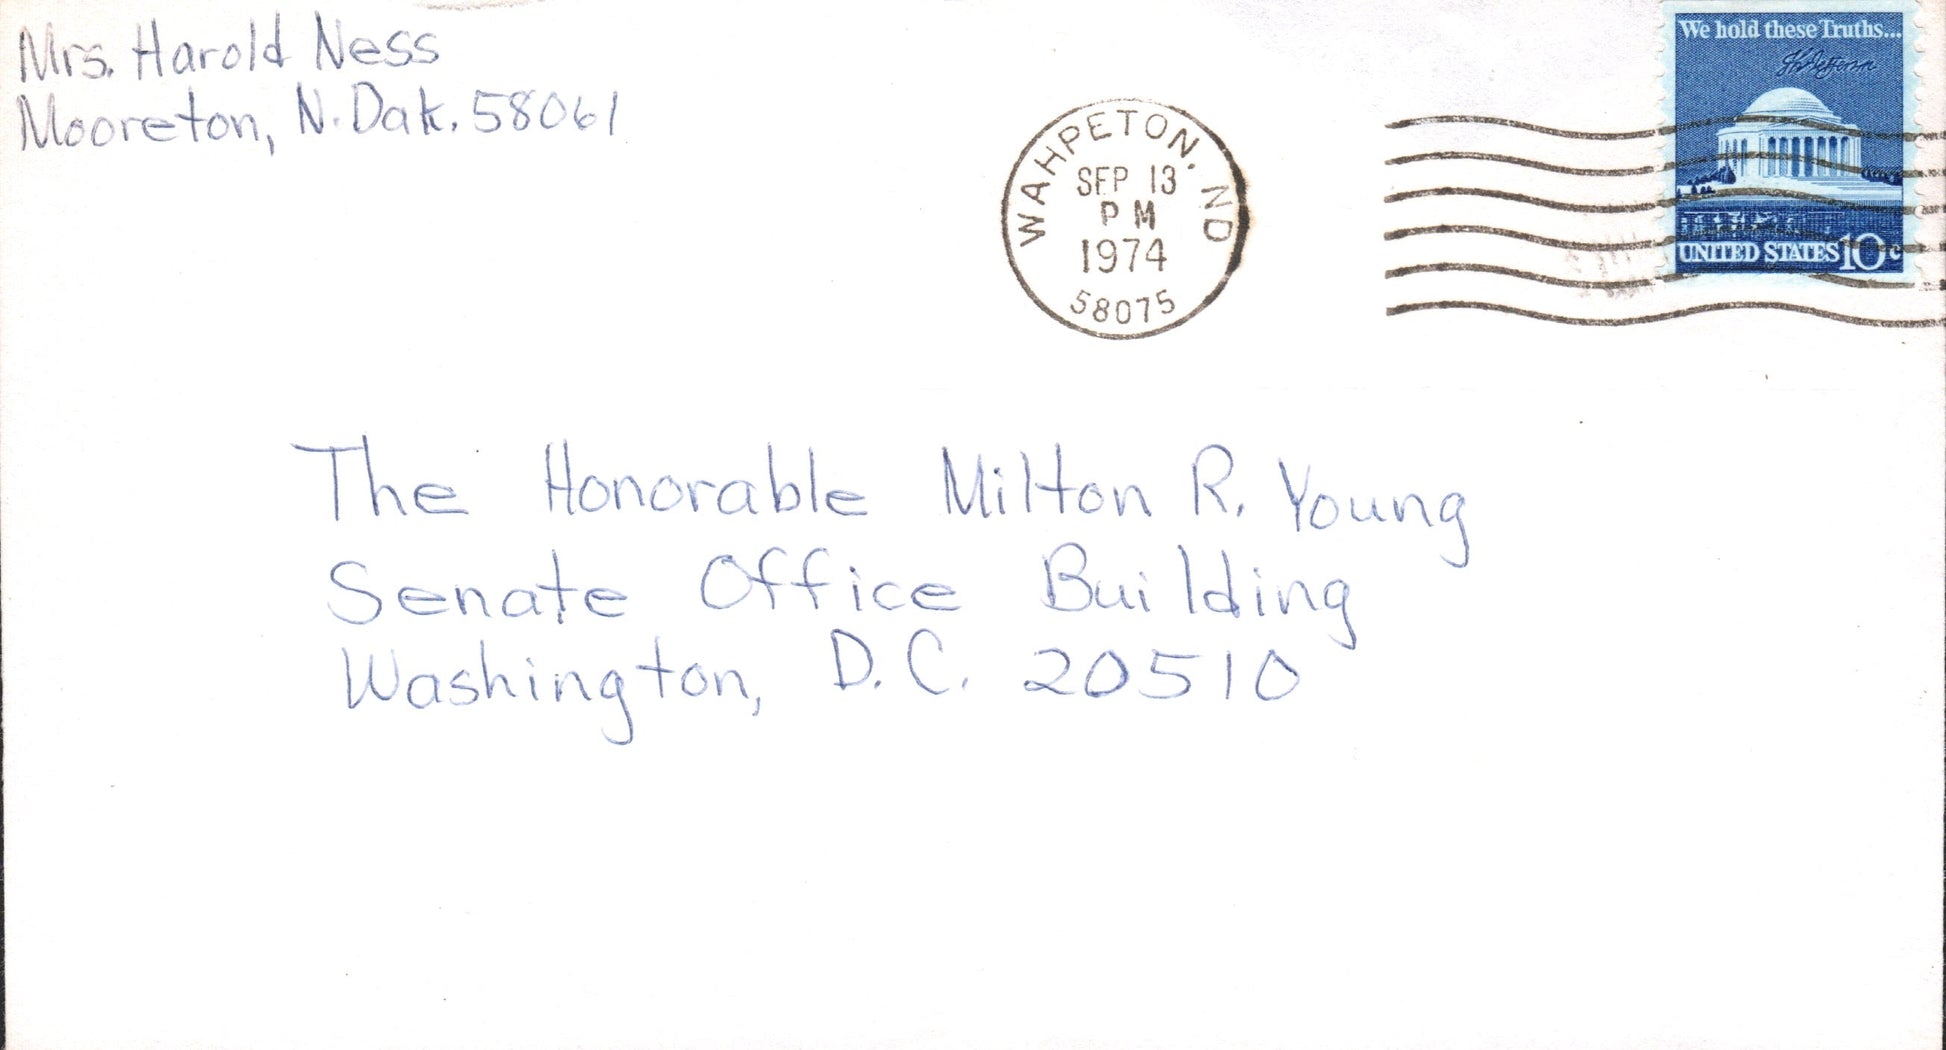 Mrs. Harold Ness
Mooreton, N. Dak. 58061
WAHPETON, ND
SEP 13
PM
1974
58075
We hold these Truths...
Th Jefferson
UNITED STATES 10c
The Honorable Milton R. Young
Senate Office Building
Washington, D.C. 20510